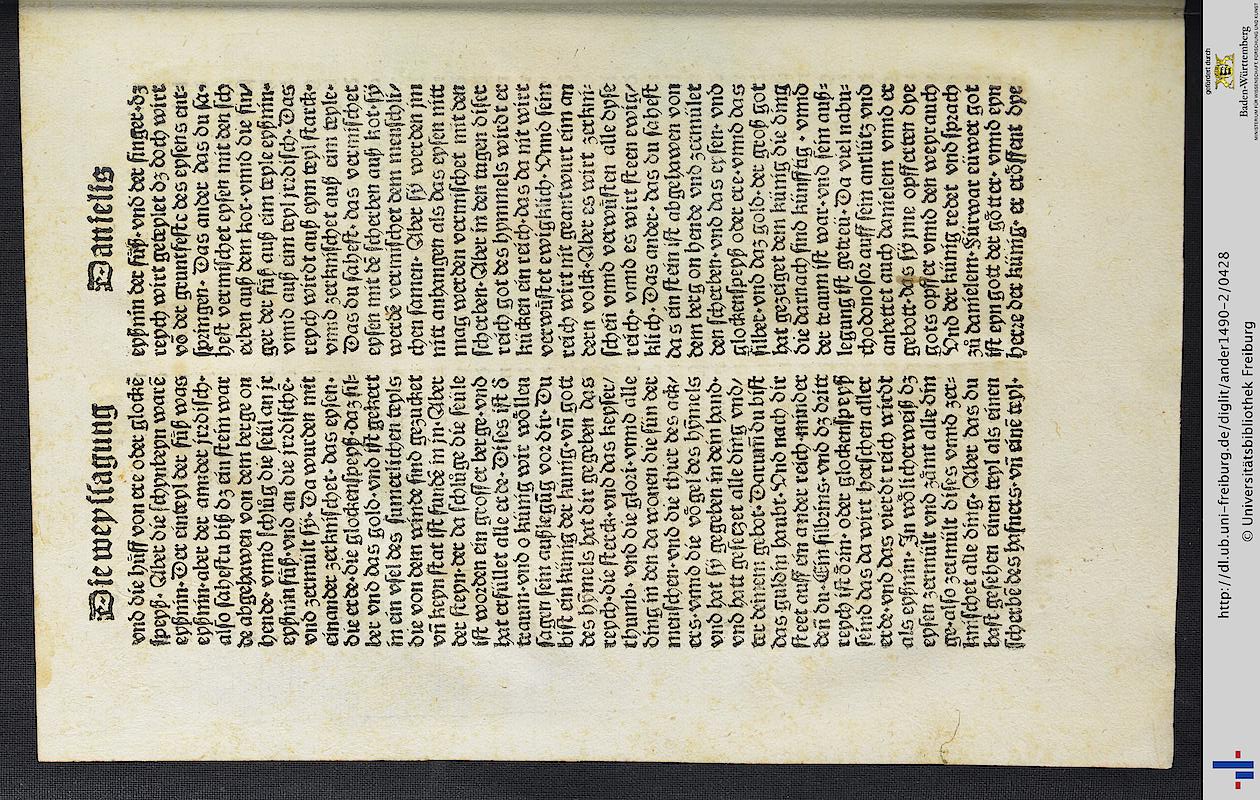 Die weyssagung
Danielis
vnd die hüff von ere oder glockē
speyß. Aber die schynbeyn warē
eyßnin. Der ein teyl der füß was
eyßnin. aber der ander jrdisch.
also sahestu biß dz ein stein war
de abgehawen von dem berge on
hende. vnnd schlůg die seül an jr
eyßnin füß. vnd an die jrdische.
vnd zermült sy. Da wurden mit
einander zerknischet. das eysen.
die erde. die glockenspeyß. daz sil-
ber vnd das gold. vnd ist gekert
in ein vsel des sumerlichen teyls
die von dem winde sind gezucket
vn̄ keyn stat ist fundē in jn. Aber
der steyn. der da schlůge die seüle
ist worden ein grosser berge. vnd
hat erfüllet alle erde. Dises ist d̄
traum. vnd o küng wir wöllen
sagen sein außlegūg vor dir. Du
bist ein küng der küng. vn̄ gott
des hymels hat dir gegeben das
reych. die sterck. vnd das keyser/
thumb. vnd die glori. vnnd alle
ding in den da wonen die sün der
menschen. vnd die thier des ack/
ers. vnnd die vögel des hymels
vnd hat sy gegeben in dein hand.
vnd hatt gesetzet alle ding vnd/
ter deinem gebot. Darum̄ du bist
das guldin haubt. Vnd nach dir
steet auff ein ander reich mynder
den̄ du. Ein silbrins. vnd dz dritt
reych ist örin. oder glockenspeyß
seind das da wirt herschen aller
erde. vnd das vierdt reich wirdt
als eyßnin. Jn wölicherweiß dz
eysen zermült vnd zämt alle ding
ge also zermült dises vnnd zer-
knischet alle ding. Aber das du
hast gesehen einen teyl als einen
scherbē des hafners. vn̄ ainē teyl.
eyßnin der füß. vnd der finger. dz
reych wirt geteylet dz doch wirt
vō der gruntfest des eysens ent-
springen. Das ander das du sa-
hest vermischet eysen mit den sch
erben auß dem kot. vnnd die fin/
ger der füß auß eim teyle eyßnin.
vnnd auß eim teyl jrdisch. Das
reych wirdt auß eym teyl starck.
vnnd zerknischet auß eim teyle.
Das du sahest. das vermischet
eysen mit dē scherben auß kot sy
werdē vermischet dem menschli/
chen samen. Aber sy werden jm
nitt anhangen als das eysen nitt
mag werden vermischet mit den
scherben. Aber in den tagen diser
reich got des hymmels wirdt er
kücken ein reich. das da nit wirt
verwüstet ewigklich. Vnd sein
reich wirt nit geantwurt eim an
dern volck. Aber es wirt zerkni-
schen vnnd verwüsten alle dyse
reich. vnnd es wirt steen ewig/
klich. Das ander. das du sahest
das ein stein ist abgehawen von
dem berg on hende vnd zermület
den scherben. vnd das eysen. vnd
glockenspeyß oder ere. vnnd das
silber. vnd daz gold. der groß got
hat gezeiget dem künig die ding
die darnach sind künfftig. vnnd
der traum ist war. vnd sein auß-
legung ist getreü. Da viel nabu-
chodonosor auff sein antlütz vnd
anbettet auch danielem vnnd er
gebott. das sy jme opfferten dye
gots opffer vnnd den weyrauch
Vnd der künig redet vnd sprach
zů danielem. Fürwar eüwer got
ist eyn gott der götter. vnnd eyn
herre der küng. er eröffent dye
http://dl.ub.uni-freiburg.de/diglit/ander1490-2/0428
© Universitätsbibliothek Freiburg
gefördert durch
Baden-Württemberg
MINISTERIUM FÜR WISSENSCHAFT, FORSCHUNG UND KUNST